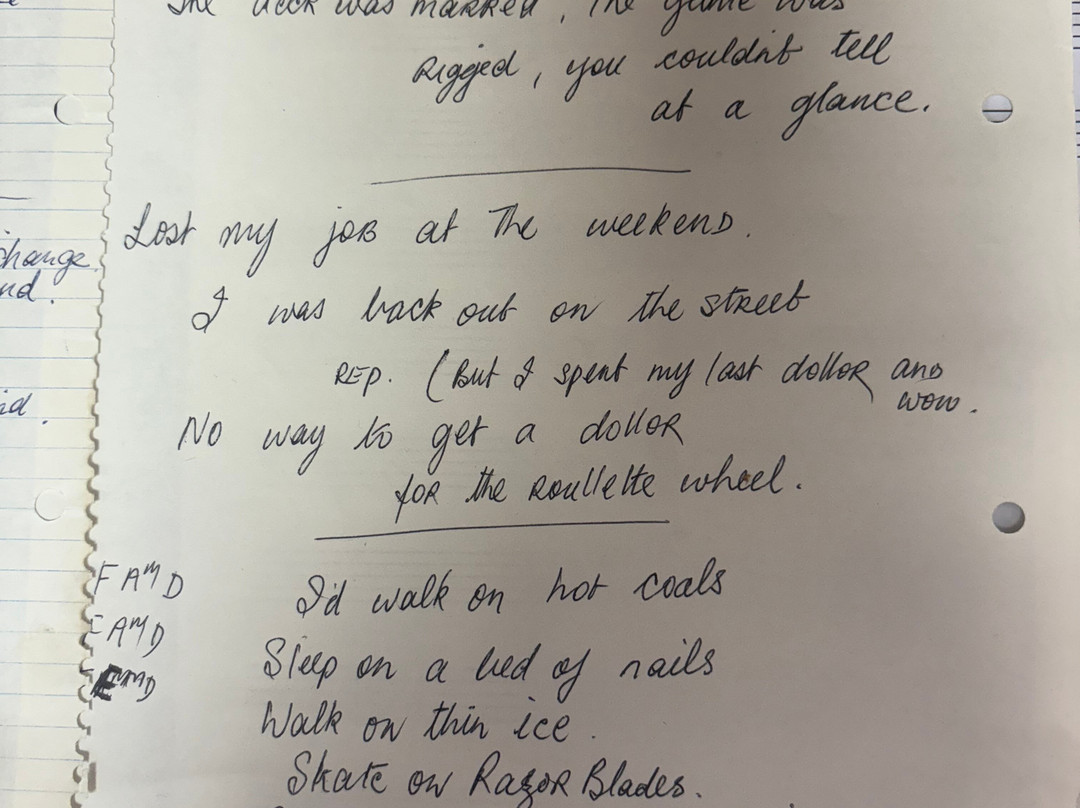 The deck was marked, The game was
Rigged, you couldn't tell
at a glance.
Lost my job at The weekend.
I was back out on the street
REP. (But I spent my last dollor and
won.
No way to get a dollor
for the roullette wheel.
F Am D I'd walk on hot coals
F Am D Sleep on a bed of nails
Em D Walk on thin ice.
Skate on Razor Blades.
change
nd.
id.